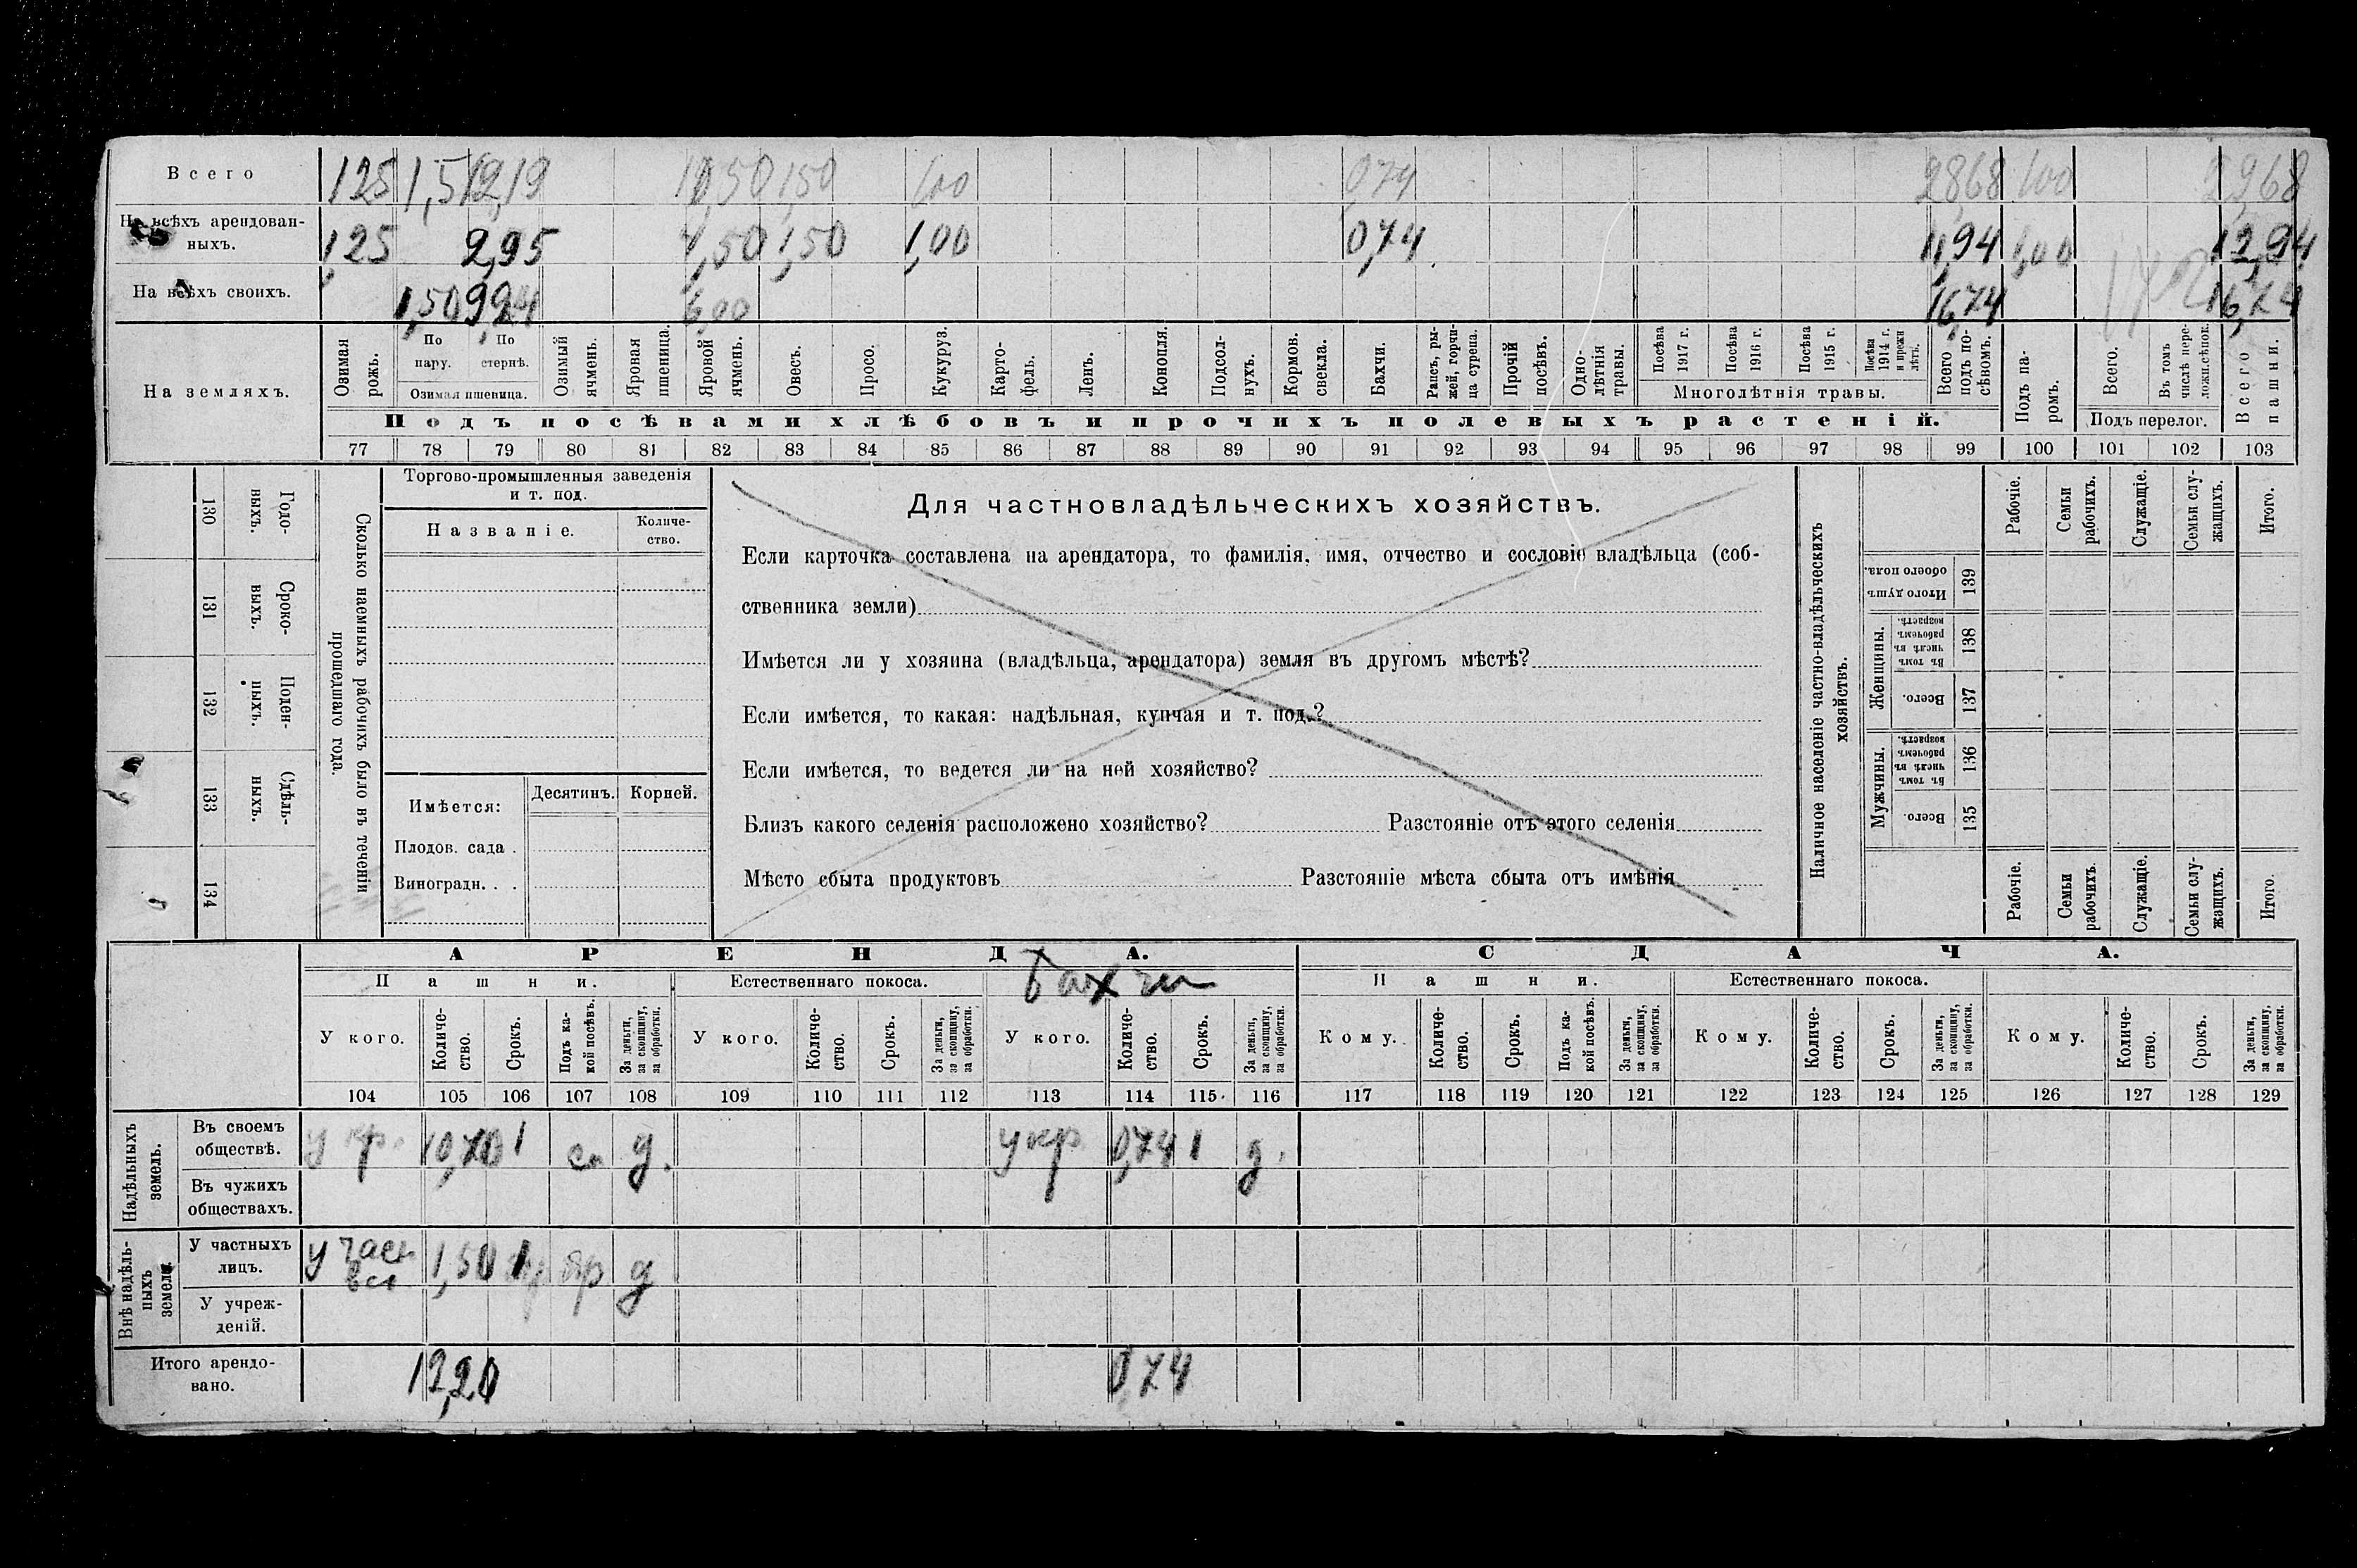 Всего 1,25 1,5 12,19 10,50 1,50 1,00 0,74 28,68 1,00 29,68
На всѣхъ арендован-
ныхъ. 1,25 2,95 4,50 1,50 1,00 0,74 11,94 1,00 12,94
На всѣхъ своихъ. 1,50 9,24 6,00 16,74 16,74
На земляхъ.
Озимая рожь.
По пару.
По стернѣ.
Озимая пшеница.
Озимый ячмень.
Яровая пшеница.
Яровой ячмень.
Овесъ.
Просо.
Кукуруз.
Карто-
фель.
Ленъ.
Конопля.
Подсол-
нухъ.
Кормов.
свекла.
Бахчи.
Рапсъ, ры-
жей, горчи-
ца сурепа.
Прочій
посѣвъ.
Одно-
лѣтнія
травы.
Посѣва
1917 г.
Посѣва
1916 г.
Посѣва
1915 г.
Посѣва
1914 г.
и прежн
лѣтъ.
Многолѣтнія травы.
Всего
подъ по-
сѣвомъ.
Подъ па-
ромъ.
Всего.
Въ томъ
числѣ пере-
ложн.сѣнок.
Подъ перелог.
Всего
пашни.
Подъ посѣвами хлѣбовъ и прочихъ полевыхъ растеній.
77 78 79 80 81 82 83 84 85 86 87 88 89 90 91 92 93 94 95 96 97 98 99 100 101 102 103
Годо-
выхъ.
130
Сроко-
выхъ.
131
Поден-
ныхъ.
132
Сдѣль-
ныхъ.
133
134
Сколько наемныхъ рабочихъ было въ теченіи
прошедшаго года.
Торгово-промышленныя заведенія
и т. под.
Названіе.
Количе-
ство.
Имѣется:
Десятинъ.
Корней.
Плодов. сада .
Виноградн. . .
Для частновладѣльческихъ хозяйствъ.
Если карточка составлена на арендатора, то фамилія, имя, отчество и сословіе владѣльца (соб-
ственника земли)
Имѣется ли у хозяина (владѣльца, арендатора) земля въ другомъ мѣстѣ?
Если имѣется, то какая: надѣльная, купчая и т. под.?
Если имѣется, то ведется ли на ней хозяйство?
Близъ какого селенія расположено хозяйство? Разстояніе отъ этого селенія
Мѣсто сбыта продуктовъ Разстояніе мѣста сбыта отъ имѣнія
Наличное населеніе частно-владѣльческихъ
хозяйствъ.
Итого душъ
обоего пола.
139
Женщины.
Въ томъ
числѣ въ
рабочемъ
возрастѣ.
138
Всего.
137
Мужчины.
Въ томъ
числѣ въ
рабочемъ
возрастѣ.
136
Всего.
135
Рабочіе.
Семьи
рабочихъ.
Служащіе.
Семьи слу-
жащихъ.
Итого.
Рабочіе.
Семьи
рабочихъ.
Служащіе.
Семьи слу-
жащихъ.
Итого.
АРЕНДА. СДАЧА.
Пашни. Естественнаго покоса. Бахчи Пашни. Естественнаго покоса.
У кого.
Количе-
ство.
Срокъ.
Подъ ка-
кой посѣвъ.
За деньги,
за скопщину,
за обработки.
У кого.
Количе-
ство.
Срокъ.
За деньги,
за скопщину,
за обработки.
У кого.
Количе-
ство.
Срокъ.
За деньги,
за скопщину,
за обработки.
Кому.
Количе-
ство.
Срокъ.
Подъ ка-
кой посѣвъ.
За деньги,
за скопщину,
за обработки.
Кому.
Количе-
ство.
Срокъ.
За деньги,
за скопщину,
за обработки.
Кому.
Количе-
ство.
Срокъ.
За деньги,
за скопщину,
за обработки.
104 105 106 107 108 109 110 111 112 113 114 115 116 117 118 119 120 121 122 123 124 125 126 127 128 129
Надѣльныхъ
земель.
Въ своемъ
обществѣ. у кр. 10,70 1 д. у кр 0,74 1 д.
Въ чужихъ
обществахъ.
Внѣ надѣль-
ныхъ
земель.
У частныхъ
лицъ. у част 1,50 1 яр д
У учреж-
деній.
Итого арендо-
вано. 12,20 0,74